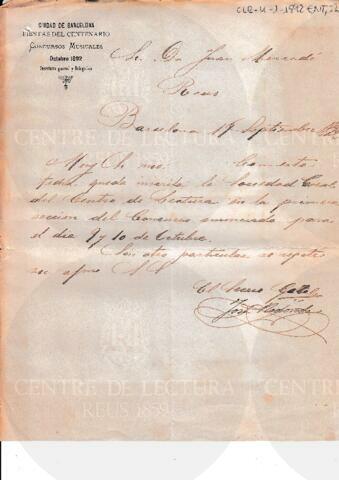 CIUDAD DE BARCELONA
FIESTAS DEL CENTENARIO
CONCURSOS MUSICALES
Octubre 1892
Secretaría general y Delegación
Sr. Dn Juan
Reus
Barcelona 17 Septiembre
Muy Sr. mio: Con esta
fecha queda inscrita la Sociedad Coral
del Centro de Lectura en la primera
seccion del Concurso anunciado para
el dia 9 y 10 de Octubre.
Sin otro particular se repite
su afmo S. S.
El
José
CENTRE DE LECTURA
REUS 1859